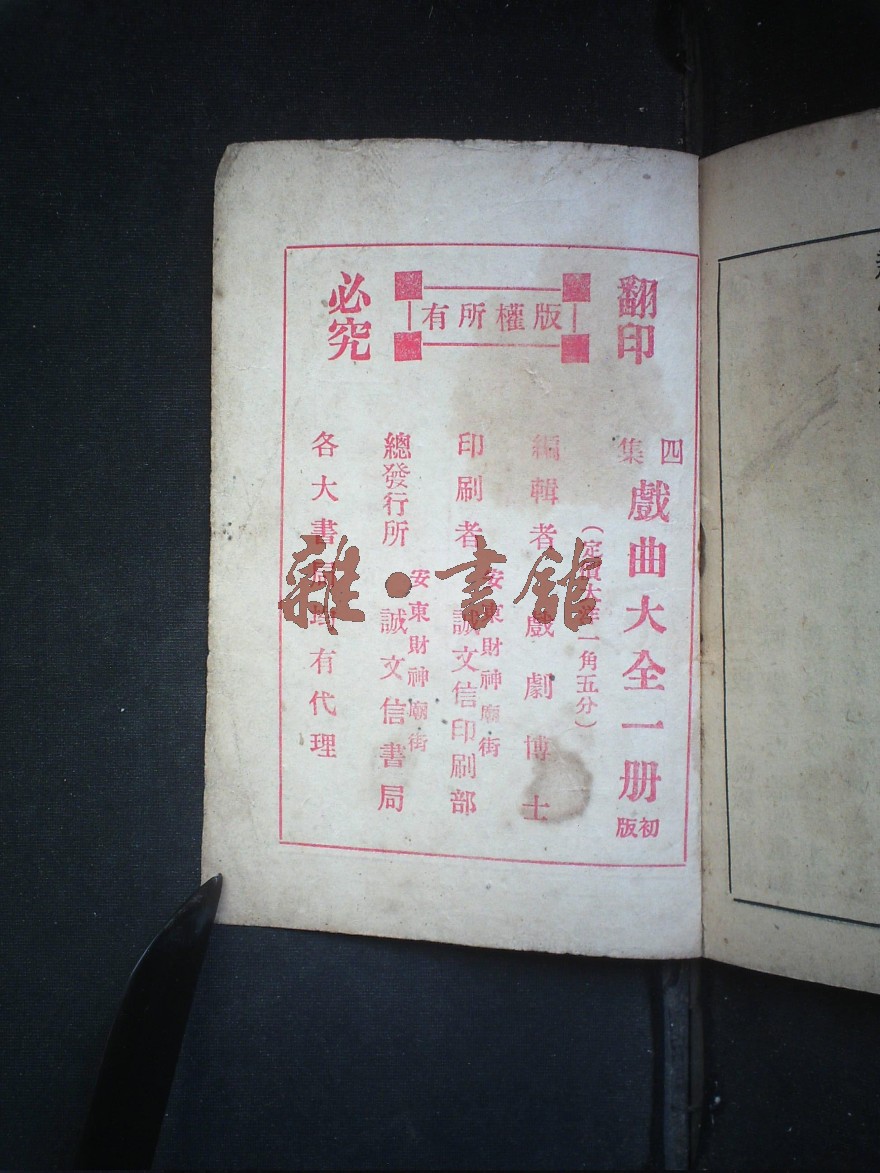 翻印
版權所有
必究
四集 戲曲大全一册 初版
（定價大洋一角五分）
編輯者 戲劇博士
印刷者 安東財神廟街 誠文信印刷部
總發行所 安東財神廟街 誠文信書局
各大書局均有代理
雜·書館